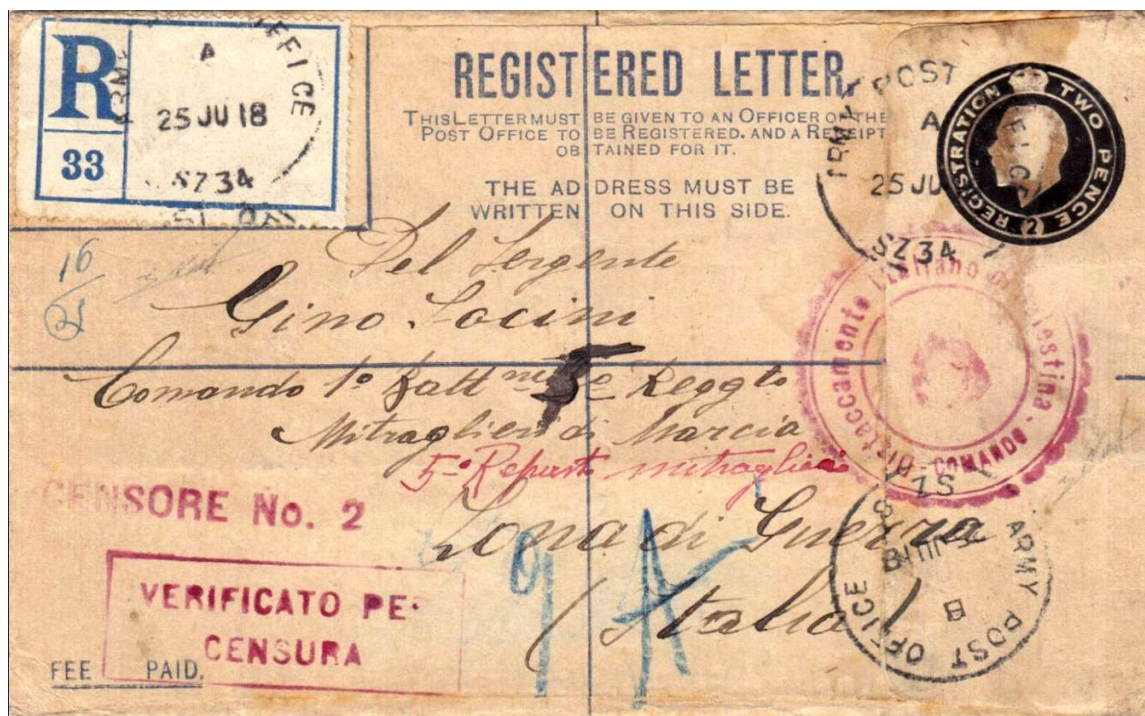 R
33
ARMY OFFICE
A
25 JU 18
SZ34
REGISTERED LETTER.
THIS LETTER MUST BE GIVEN TO AN OFFICER OF THE
POST OFFICE TO BE REGISTERED. AND A RECEIPT
OBTAINED FOR IT.
THE ADDRESS MUST BE
WRITTEN ON THIS SIDE.
ARMY POST
A
25 JU
SZ34
REGISTRATION TWO PENCE (2)
16
Del Sergente
Gino Socini
Comando 1º Batt
Reggto
Mitraglieri di Marcia
5º Reparto mitraglieri
Zona di Guerra
(Italia)
Distaccamento Italiano di
lestina - COMANDO -
CENSORE No. 2
VERIFICATO PE
CENSURA
9 A
ARMY POST OFFICE
SZ
B
FEE PAID.